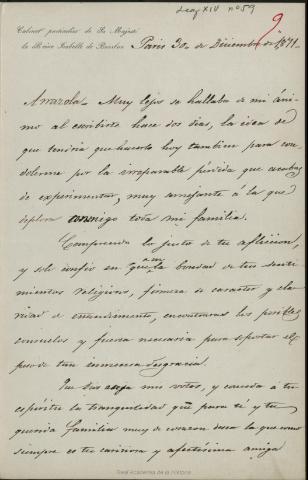 Leg XIV nº 59
9
Cabinet particulier de Sa Majesté
la Reine Isabelle de Bourbon
Paris 30 de Diciembre de 1871.
Arrazola. Muy lejos se hallaba de mi áni-
mo al escribirte hace dos dias, la idea de
que tendria que hacerlo hoy tambien para con-
dolerme por la irreparable pérdida que acabas
de experimentar, muy semejante á la que
deplora conmigo toda mi familia.
Comprendo lo justo de tu afliccion,
y solo confio en que en la bondad de tus senti-
mientos religiosos, firmeza de caracter y cla-
ridad de entendimiento, encontraras los posibles
consuelos y fuerza necesaria para soportar el
peso de tan inmensa desgracia.
mis votos, y conceda á tu
espiritu la tranquilidad que para tí y tu
querida familia muy de corazon desea la que como
siempre es tu cariñosa y afectísima amiga
Real Academia de la Historia